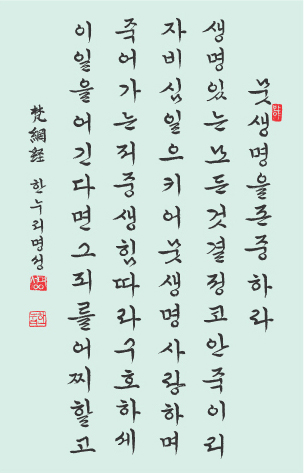 뭇생명을존중하라
생명있는모든것결정코안죽이리
자비심일으키어뭇생명사랑하며
죽어가는죄중생힘따라구호하세
이일을어긴다면그죄를어찌할고
梵網經 한누리명정